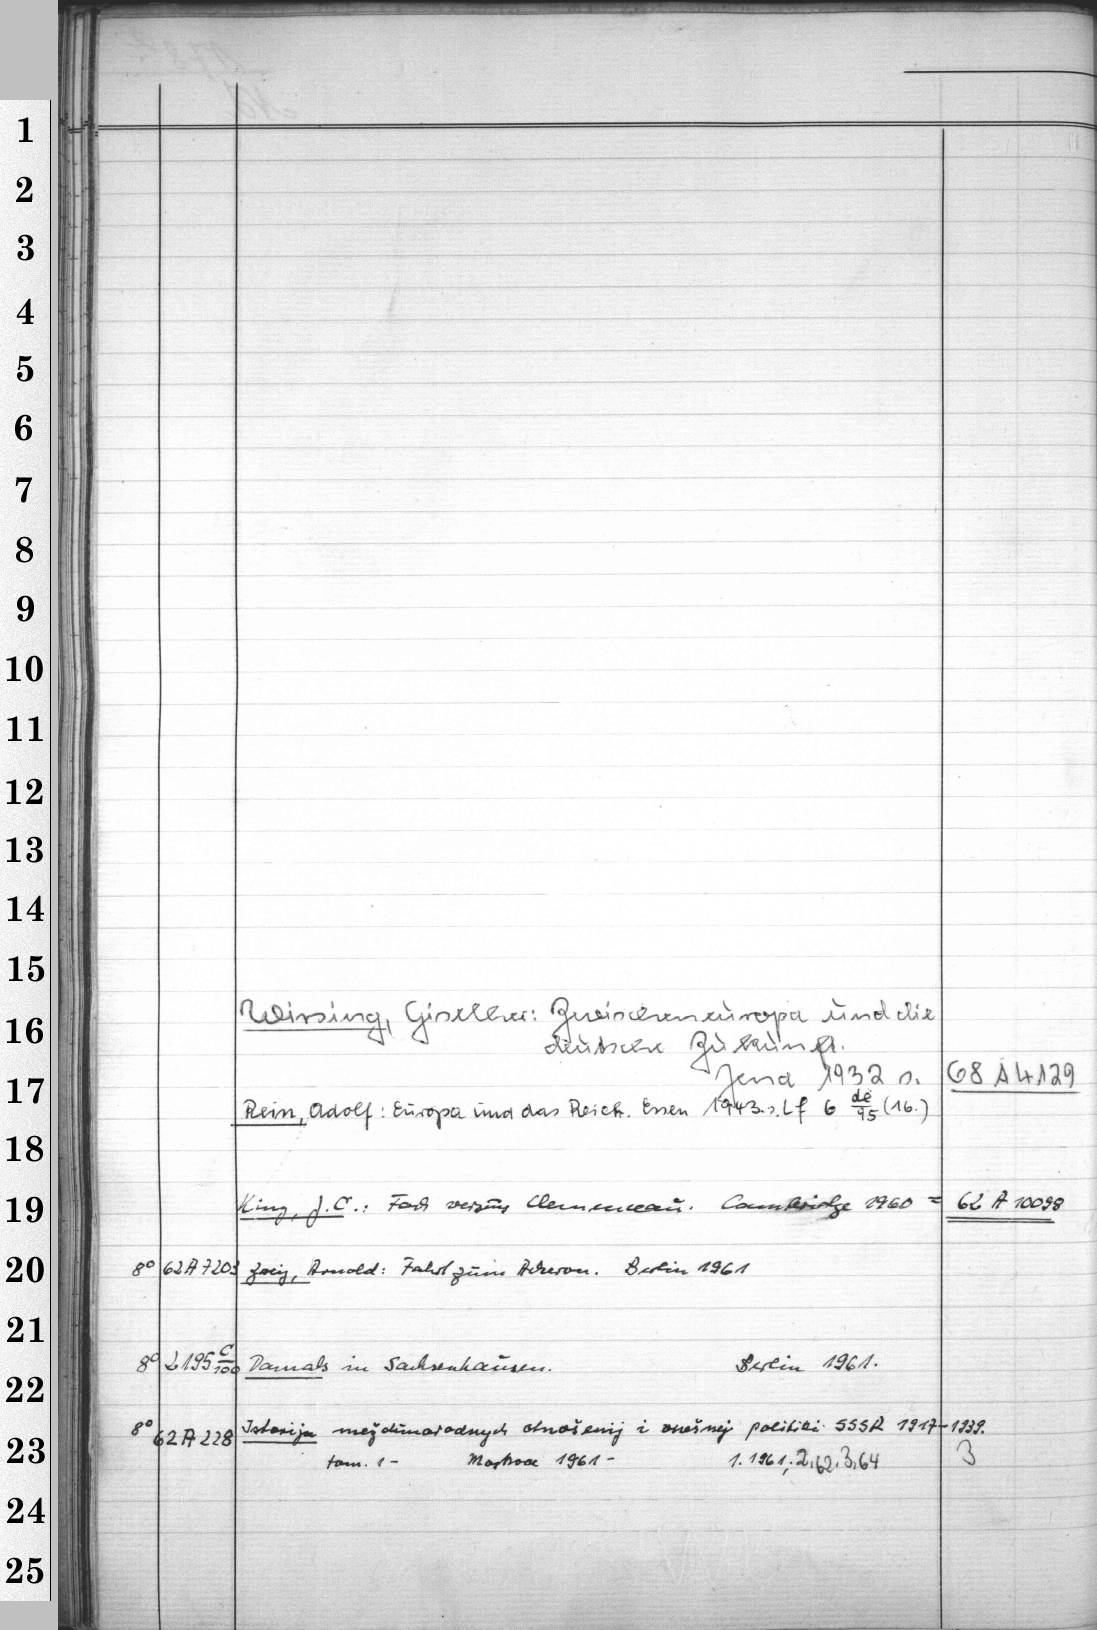 1
2
3
4
5
6
7
8
9
10
11
12
13
14
15
16
17
18
19
20
21
22
23
24
25
Wirsing, Giselher: Zwischeneuropa und die
deutsche Zukunft.
Jena 1932 s. 68 A 4129
Rein, Adolf: Europa und das Reich. Essen 1943. s. Lf 6 de/95 (16.)
King, J. C.: Foch versus Clemenceau. Cambridge 1960 = 62 A 10098
8° 62 A 7203 Zweig, Arnold: Fahrt zum Acheron. Berlin 1961
8° L 195 C/100 Damals in Sachsenhausen. Berlin 1961.
8° 62 A 228 Istorija meždunarodnych otnošenij i vnešnej politiki SSSR 1917-1939.
tom. 1 - Moskva 1961 - 1. 1961; 2,62. 3,64 3